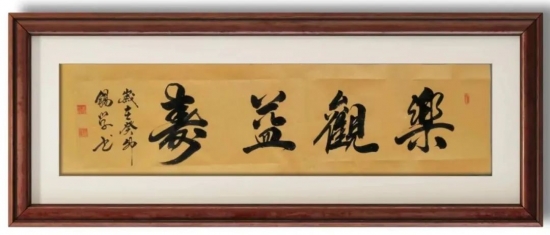 樂觀益壽
歲在癸卯
錫
書